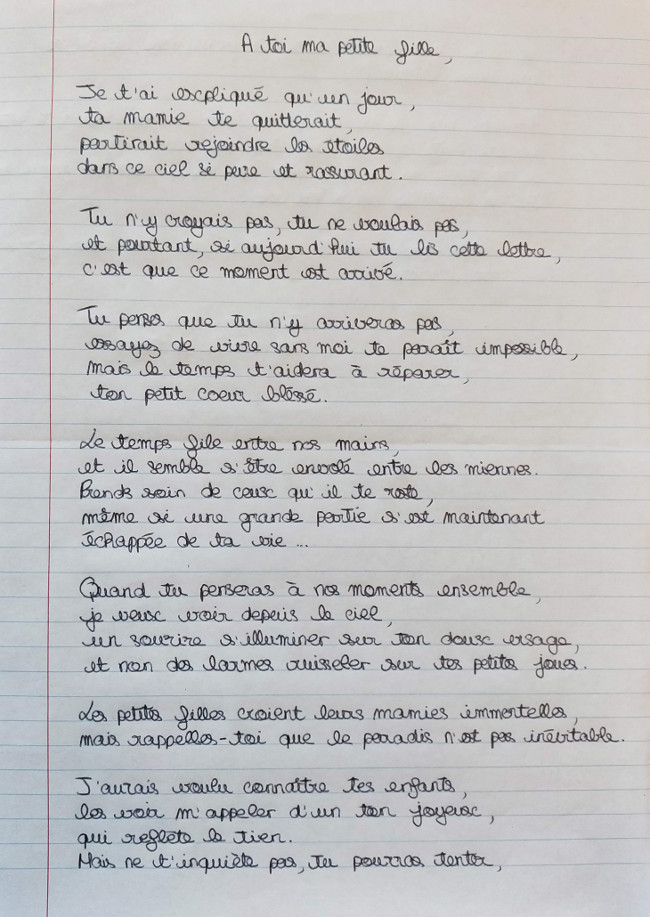 A toi ma petite fille,
Je t'ai expliqué qu'un jour,
ta mamie te quitterait,
partirait rejoindre les étoiles
dans ce ciel si pure et rassurant.
Tu n'y croyais pas, tu ne voulais pas,
et pourtant, si aujourd'hui tu lis cette lettre,
c'est que ce moment est arrivé.
Tu penses que tu n'y arriveras pas,
essayez de vivre sans moi te paraît impossible,
mais le temps t'aidera à réparer,
ton petit coeur bléssé.
Le temps file entre nos mains,
et il semble s'être envolé entre les miennes.
Prends soin de ceux qu'il te reste,
même si une grande partie s'est maintenant
échappée de ta vie ...
Quand tu penseras à nos moments ensemble,
je veux voir depuis le ciel,
un sourire s'illuminer sur ton doux visage,
et non des larmes ruisseler sur tes petites joues.
Les petites filles croient leurs mamies immortelles,
mais rappelles-toi que le paradis n'est pas inévitable.
J'aurais voulu connaître tes enfants,
les voir m'appeler d'un ton joyeux,
qui reflète le tien.
Mais ne t'inquiète pas, tu pourras tenter,